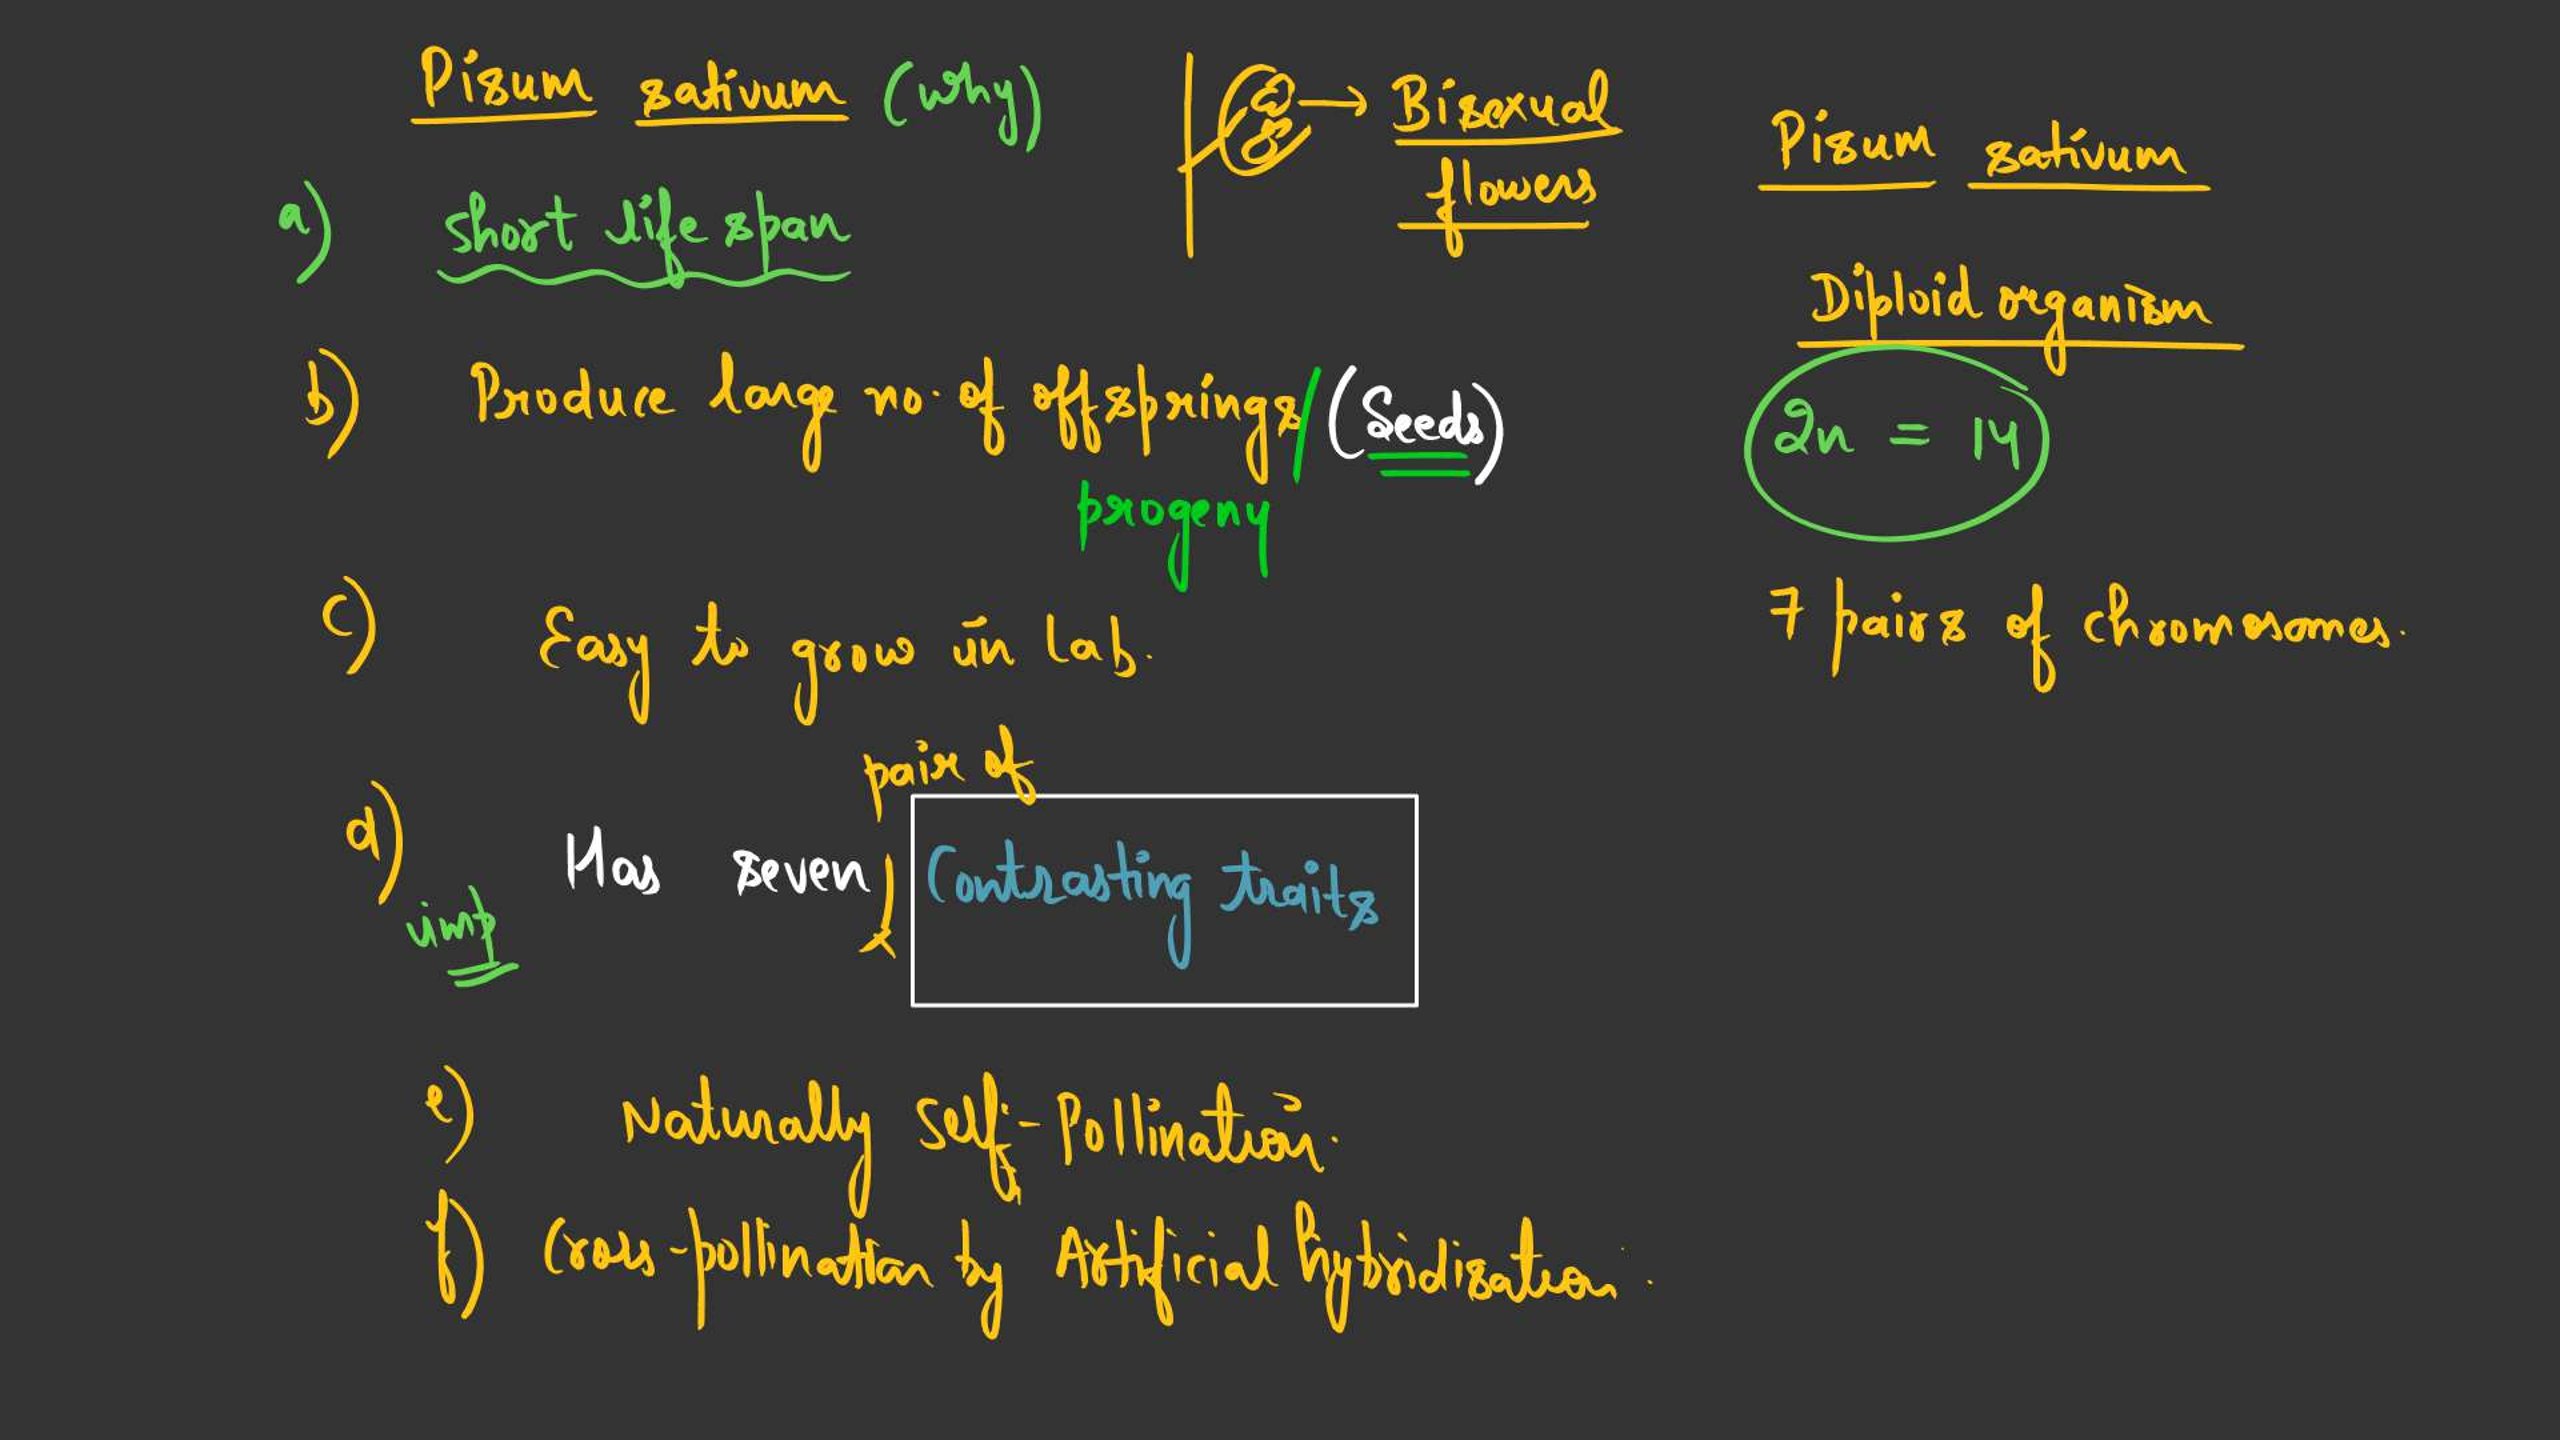 Pisum sativum (why)
a) short life span
b) Produce large no. of offsprings/(Seeds)
progeny
c) Easy to grow in lab.
pair of
d) Has seven Contrasting traits
imp
e) Naturally Self-Pollination.
f) Cross-pollination by Artificial hybridisation.
Bisexual
flowers
Pisum sativum
Diploid organism
2n = 14
7 pairs of chromosomes.